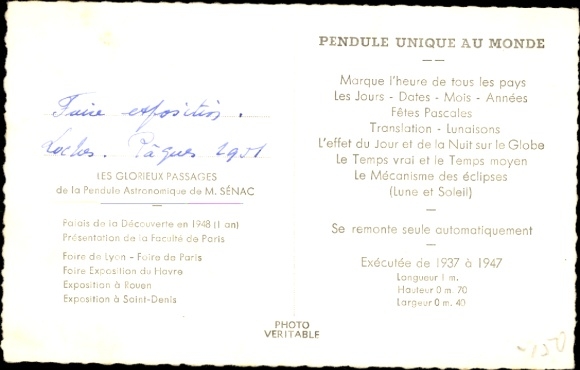 Foire exposition.
Loches. Pâques 1951
LES GLORIEUX PASSAGES
de la Pendule Astronomique de M. SÉNAC
Palais de la Découverte en 1948 (1 an)
Présentation de la Faculté de Paris
Foire de Lyon - Foire de Paris
Foire Exposition du Havre
Exposition à Rouen
Exposition à Saint-Denis
PENDULE UNIQUE AU MONDE
Marque l'heure de tous les pays
Les Jours - Dates - Mois - Années
Fêtes Pascales
Translation - Lunaisons
L'effet du Jour et de la Nuit sur le Globe
Le Temps vrai et le Temps moyen
Le Mécanisme des éclipses
(Lune et Soleil)
Se remonte seule automatiquement
Exécutée de 1937 à 1947
Longueur 1 m.
Hauteur 0 m. 70
Largeur 0 m. 40
PHOTO
VERITABLE
-150